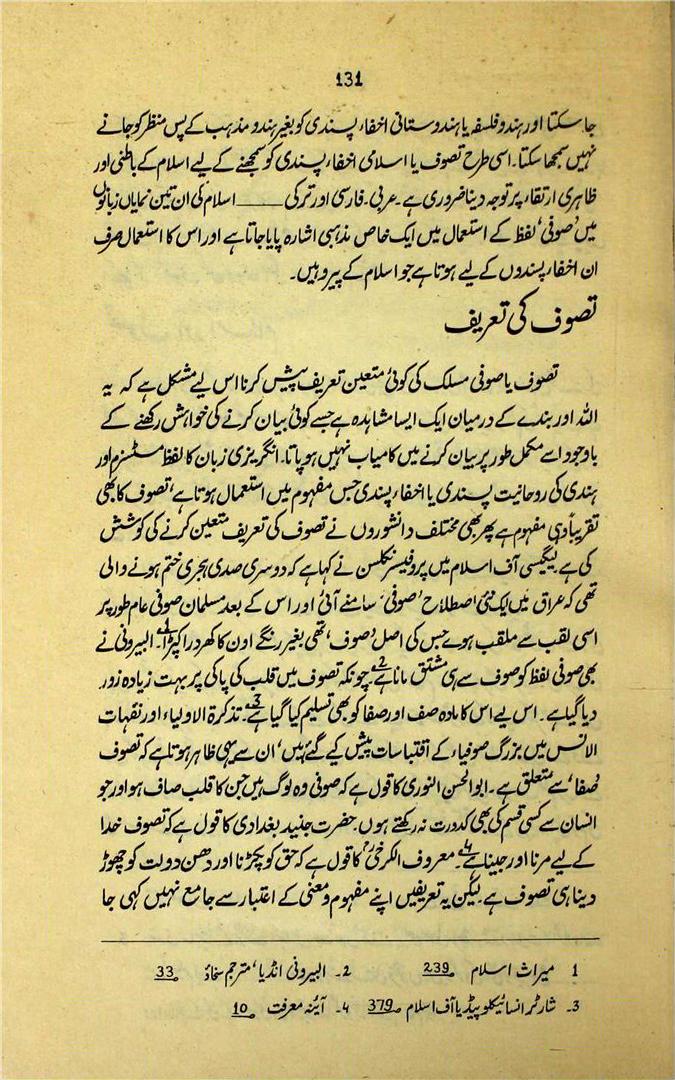 131
جا سکتا اور ہندو فلسفہ یا ہندوستانی اخفاء پسندی کو بغیر ہندو مذہب کے پس منظر کو جانے
نہیں سمجھا سکتا۔ اسی طرح تصوف یا اسلامی اخفاء پسندی کو سمجھنے کے لیے اسلام کے باطنی اور
ظاہری ارتقاء پر توجہ دینا ضروری ہے۔ عربی۔ فارسی اور ترکی ____ اسلام کی ان تین نمایاں زبانوں
میں ’صوفی‘ لفظ کے استعمال میں ایک خاص مذہبی اشارہ پایا جاتا ہے اور اس کا استعمال صرف
ان اخفاء پسندوں کے لیے ہوتا ہے جو اسلام کے پیرو ہیں۔
تصوف کی تعریف
تصوف یا صوفی مسلک کی کوئی متعین تعریف پیش کرنا اس لیے مشکل ہے کہ یہ
اللہ اور بندے کے درمیان ایک ایسا مشاہدہ ہے جسے کوئی بیان کرنے کی خواہش رکھنے کے
باوجود اسے مکمل طور پر بیان کرنے میں کامیاب نہیں ہو پاتا۔ انگریزی زبان کا لفظ مسٹسزم اور
ہندی کی روحانیت پسندی یا اخفاء پسندی جس مفہوم میں استعمال ہوتا ہے، تصوف کا بھی
تقریباً وہی مفہوم ہے پھر بھی مختلف دانشوروں نے تصوف کی تعریف متعین کرنے کی کوشش
کی ہے۔ لیگیسی آف اسلام میں پروفیسر نکلسن نے کہا ہے کہ دوسری صدی ہجری ختم ہونے والی
تھی کہ عراق میں ایک نئی اصطلاح ’صوفی‘ سامنے آئی اور اس کے بعد مسلمان صوفی عام طور پر
اسی لقب سے ملقب ہوے جس کی اصل ’صوف‘ تھی بغیر رنگے اون کا کھردرا کپڑا۔1 البیرونی نے
بھی صوفی لفظ کو صوف سے ہی مشتق مانا ہے2۔ چونکہ تصوف میں قلب کی پاکی پر بہت زیادہ زور
دیا گیا ہے۔ اس لیے اس کا مادہ صف اور صفا کو بھی تسلیم کیا گیا ہے3۔ تذکرۃ الاولیاء اور نفہات
الانس میں بزرگ صوفیاء کے اقتباسات پیش کیے گئے ہیں، ان سے یہی ظاہر ہوتا ہے کہ تصوف
’صفا‘ سے متعلق ہے۔ ابوالحسن النوری کا قول ہے کہ صوفی وہ لوگ ہیں جن کا قلب صاف ہو اور جو
انسان سے کسی قسم کی بھی کدورت نہ رکھتے ہوں۔ حضرت جنید بغدادی کا قول ہے کہ تصوف خدا
کے لیے مرنا اور جینا ہے4۔ معروف الکرخیؒ کا قول ہے کہ حق کو پکڑنا اور دھن دولت کو چھوڑ
دینا ہی تصوف ہے۔ لیکن یہ تعریفیں اپنے مفہوم و معنی کے اعتبار سے جامع نہیں کہی جا
1 میراث اسلام 239 2۔ البیرونی انڈیا، مترجم سخاؤ 33
3۔ شارٹر انسائیکلوپیڈیا آف اسلام 379 ۴۔ آئنہ معرفت 10